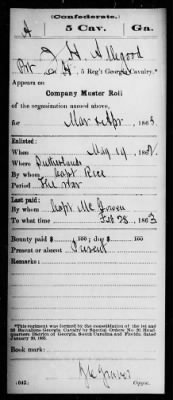 (Confederate.)
A 5 Cav. Ga.
J. H. Allgood
Pvt Co. A, 5 Reg't Georgia Cavalry.*
Appears on
Company Muster Roll
of the organization named above,
for Mar & Apr, 1863
Enlisted:
When May 14, 186
Where
By whom Capt Rice
Period The War
Last paid:
By whom Capt McGowen
To what time Feb 28, 1863
Bounty paid $ 100; due $ 100
Present or absent Present
Remarks:
*This regiment was formed by the consolidation of the 1st and
2d Battalions Georgia Cavalry by Special Orders No. 20 Head-
quarters District of Georgia, South Carolina and Florida, dated
January 20, 1863.
Book mark:
(642)
Copyist.